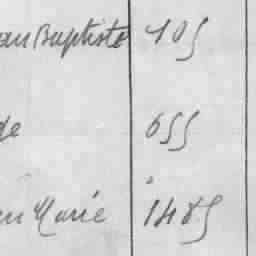 an Baptiste 405
de 655
en Marie 1485